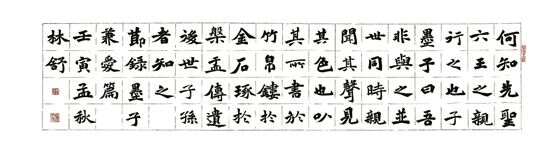 何知先聖
六王之親
行之也子
墨子曰吾
非與之並
世同時親
聞其聲見
其色也以
其所書於
竹帛鏤於
金石琢於
槃盂傳遺
後世子孫
者知之
節錄墨子
兼愛篇
壬寅孟秋
林舒